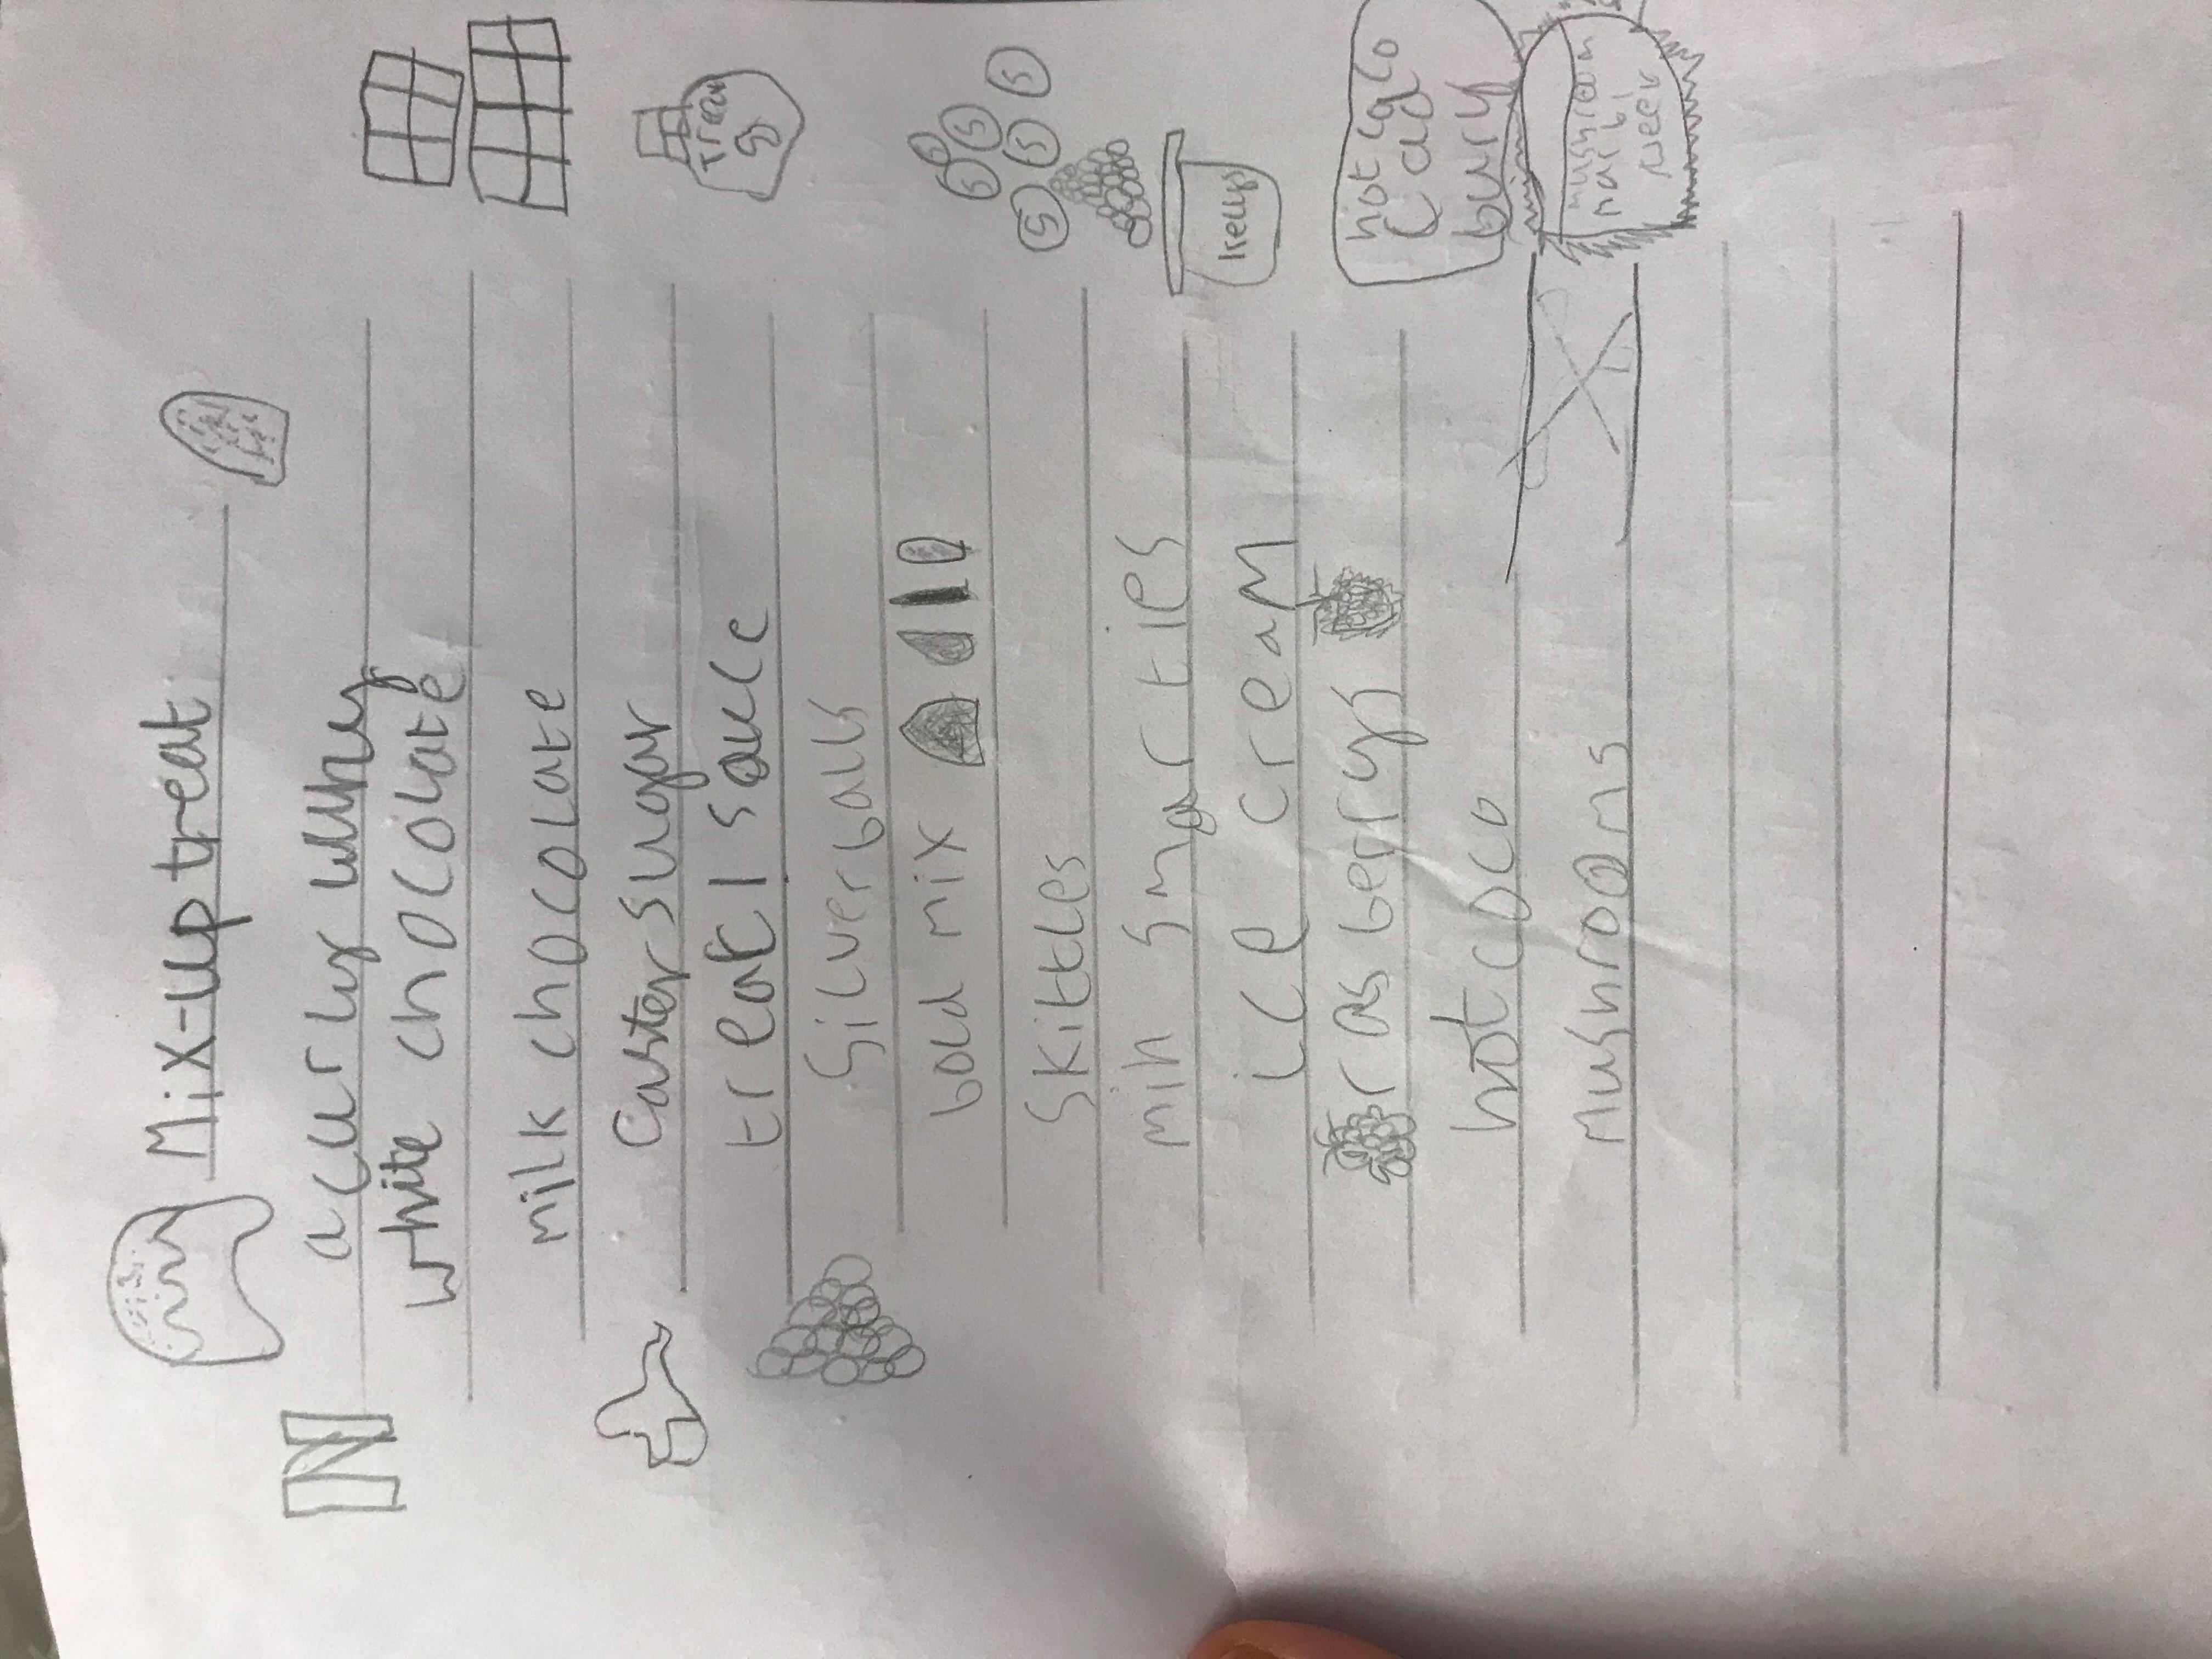 Mix-up treat
a curly wurly
white chocolate
milk chocolate
Caster sugar
treakl sauce
Silver balls
bold mix
Skittles
mih smarties
ice cream
rasberrys
hot coco
mushrooms
S
S
S
S
S
S
hot coco
Cad
bury
mushroom